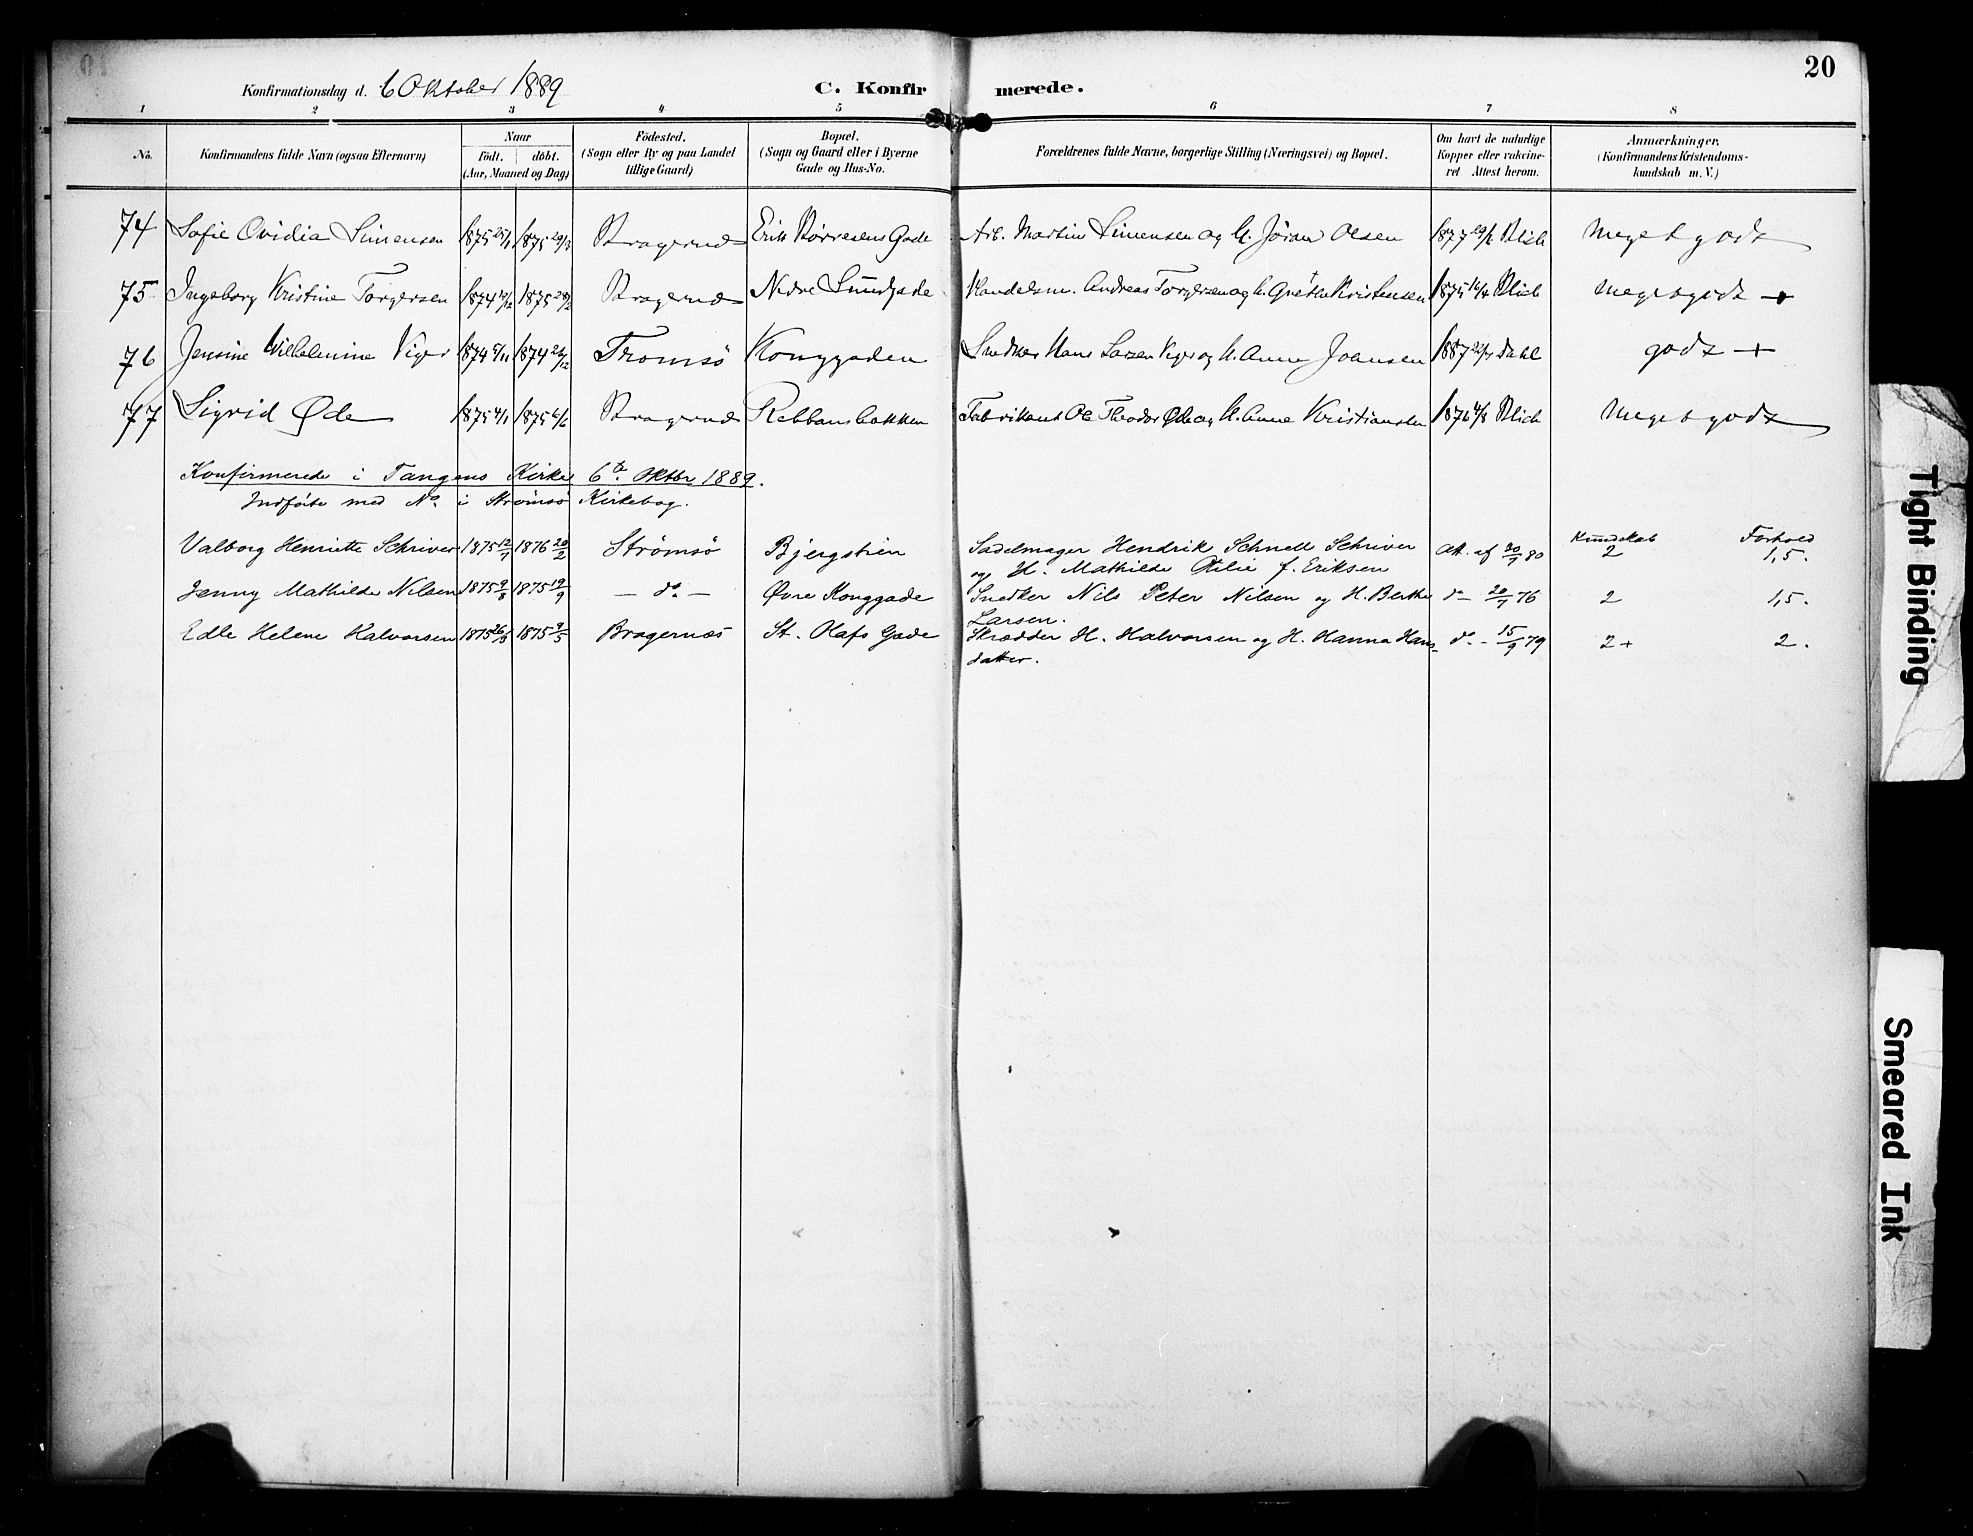 20
Konfirmationsdag d. 6 Oktober 1889
C. Konfirmerede.
1 2 3 4 5 6 7 8
No.
Konfirmandens fulde Navn (ogsaa Efternavn)
Naar
Födt. döbt.
(Aar, Maaned og Dag)
Födested.
(Sogn eller By og paa Landet
tillige Gaard)
Bopæl.
(Sogn og Gaard eller i Byerne
Gade og Hus-No.
Forældrenes fulde Navne, borgerlige Stilling (Næringsvei) og Bopæl.
Om havt de naturlige
Kopper eller vakcine-
ret Attest herom.
Anmærkninger.
(Konfirmandens Kristendoms-
kundskab m. V.)
74 Sofie Ovidia Simensen 1875 25/1 1875 29/3 Bragernæs Erik Börresens Gade Arb. Martin Simensen og H. Jöran Olsen 1877 29/6 Blich Meget godt
75 Ingeborg Kristine Torgersen 1874 12/12 1875 28/2 Bragernæs Nedre Sundgade Handelsm. Andreas Torgersen og H. Grethe Kristensen 1875 16/4 Blich meget godt +
76 Jensine Wilhelmine Viger 1874 5/11 1874 26/12 Tromsö Konggaden Snedker Hans Larsen Viger og H. Anna Joansen 1887 Dahl godt +
77 Sigrid Øde 1875 4/1 1875 6/6 Bragernæs Rebbansbakken Fabrikant Ole Theodor Øde og H. Anne Kristiansen 1876 4/8 Blich Meget godt
Konfirmerede i Tangens Kirke 6te Oktbr 1889.
Indförte med No. i Strömsö Kirkebog.
Kundskab Forhold
Valborg Henriette Schriver 1875 12/7 1876 20/2 Strömsö Bjergstien Sadelmager Hendrik Schnell Schriver Att. af 20/9 80 2 1,5.
og H. Mathilde Otilie f. Eriksen
Jenny Mathilde Nilsen 1875 9/8 1875 19/9 – do. – Øvre Konggade Snedker Nils Peter Nilsen og H. Berthe do – 20/7 76 2 1,5.
Larsen.
Edle Helene Halvorsen 1875 26/3 1875 9/5 Bragernæs St. Olafs Gade Skrædder H. Halvorsen og H. Hanna Hans- do – 15/9 79 2+ 2.
datter.
Tight Binding
Smeared Ink